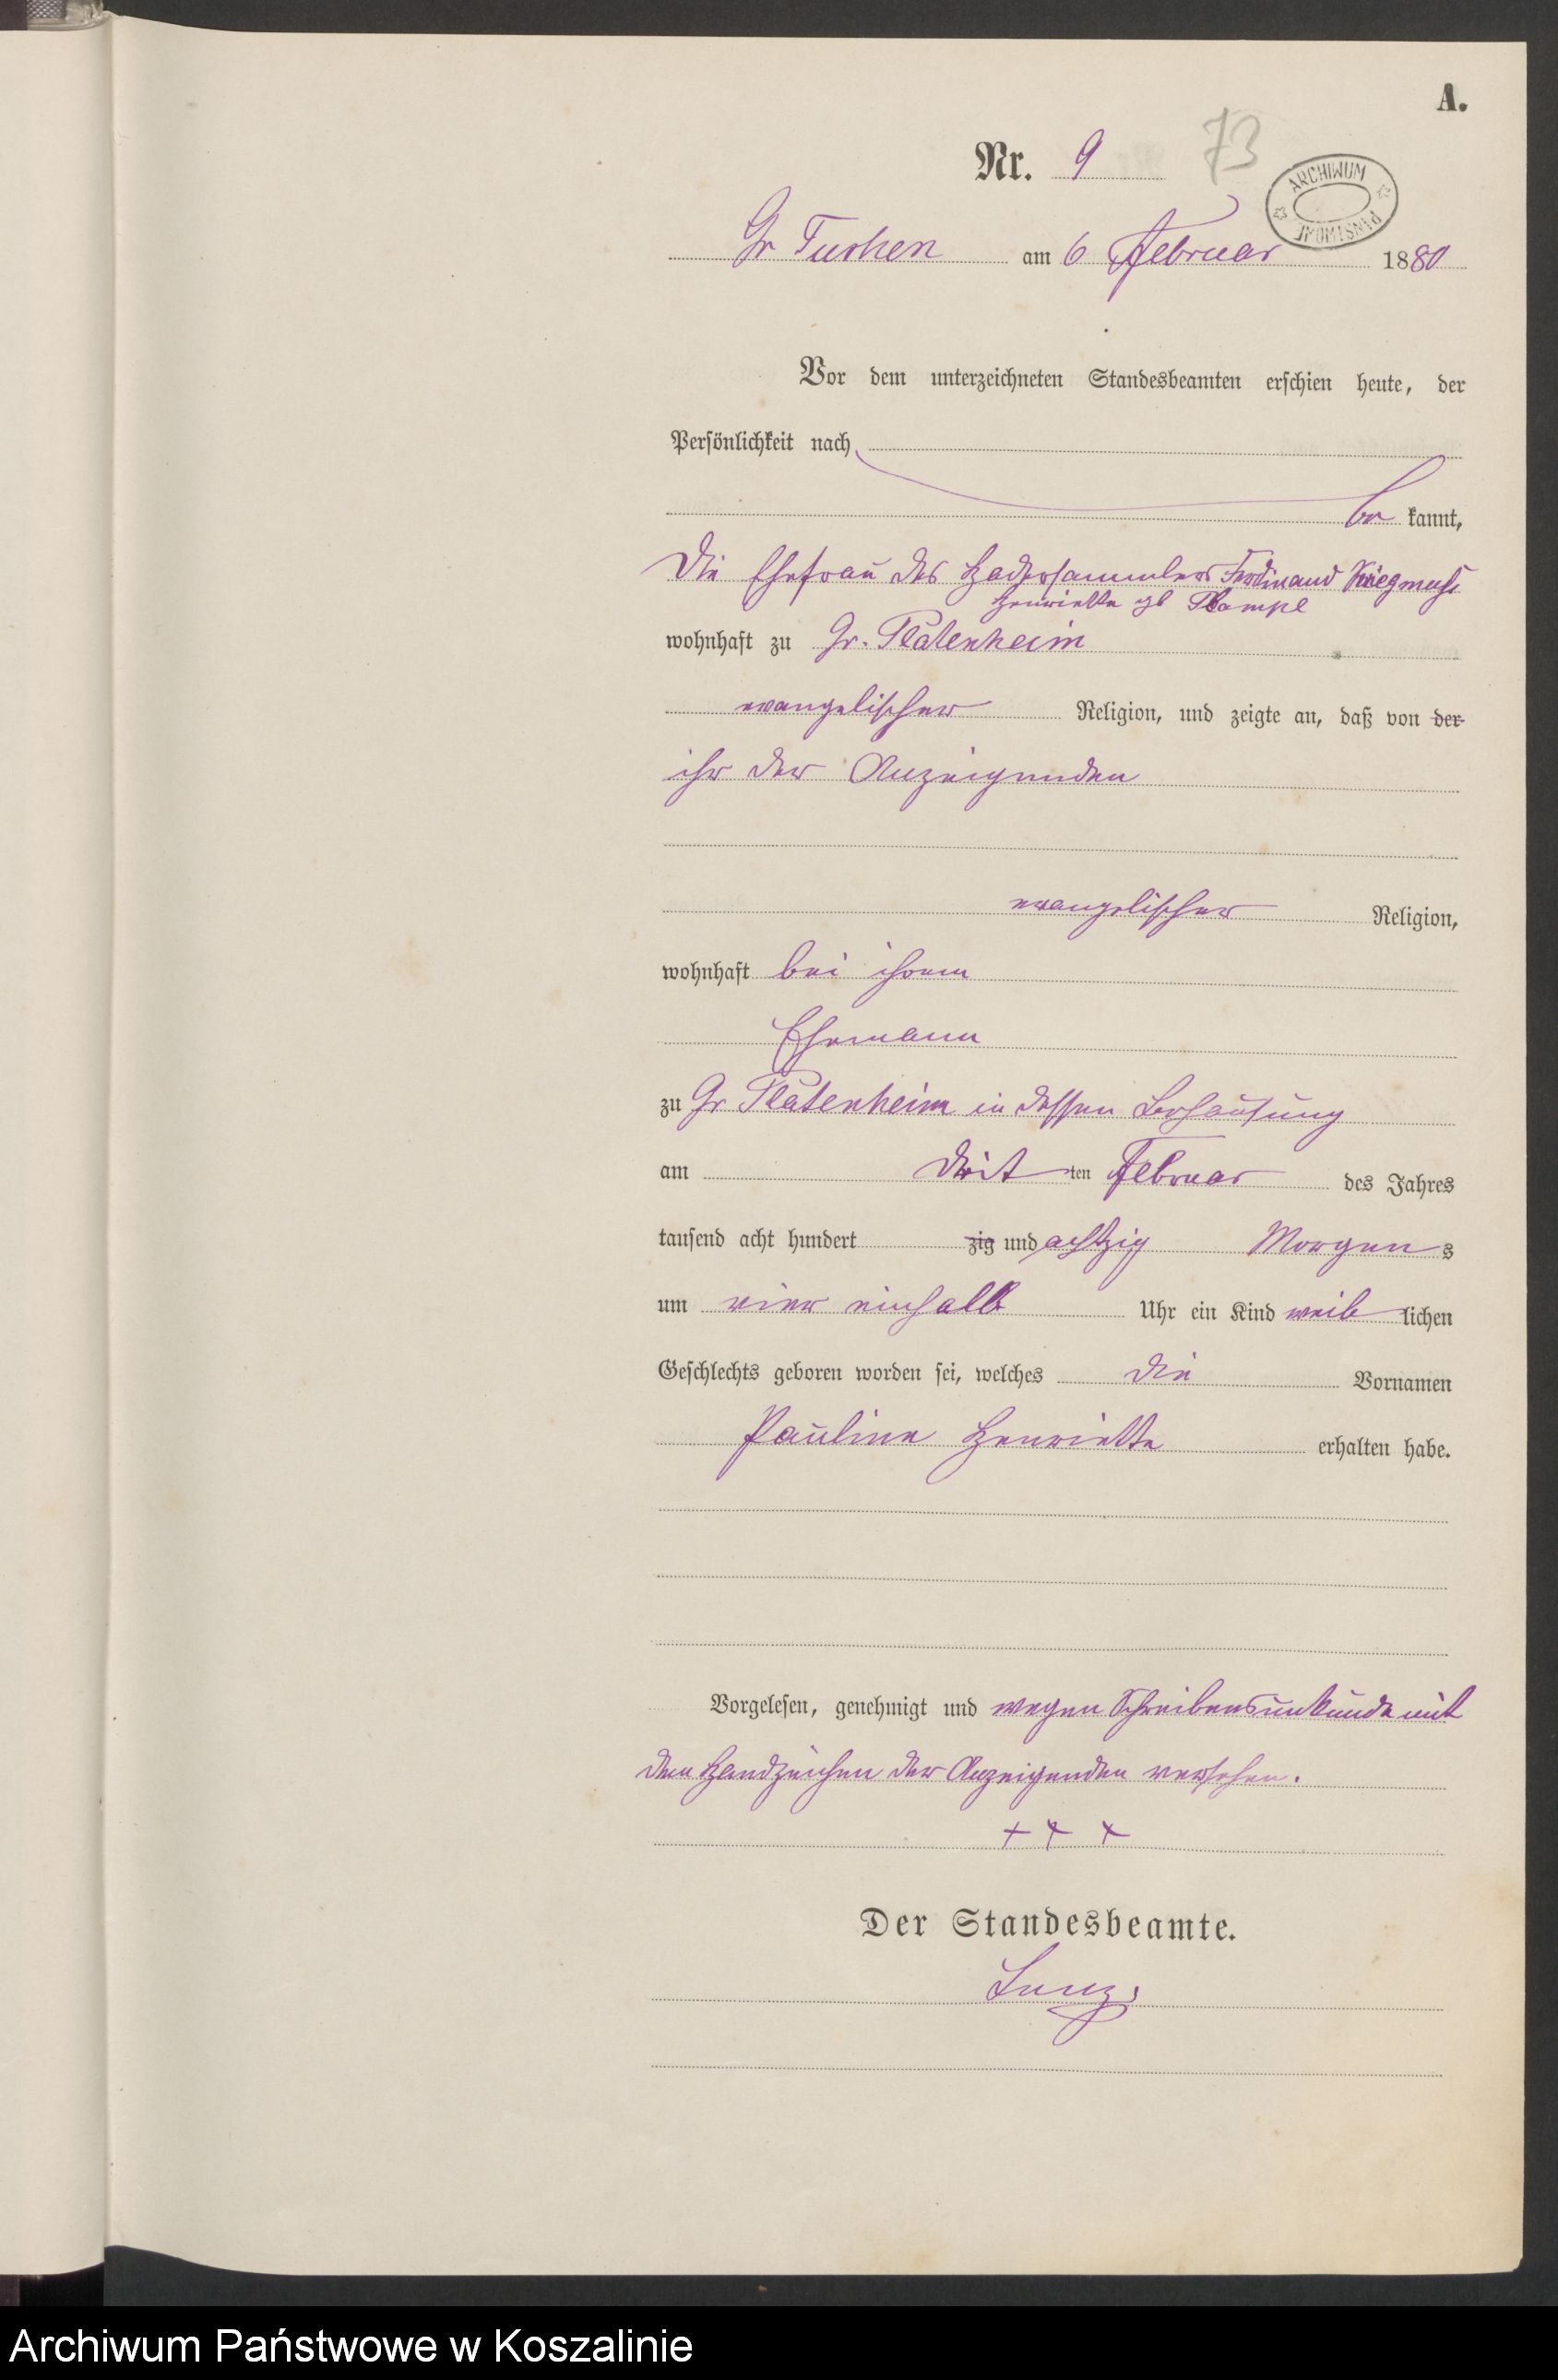 A.
Nr. 9 73
ARCHIWUM PAŃSTWOWE
Gr Tuchen am 6 Februar 1880
Vor dem unterzeichneten Standesbeamten erschien heute, der
Persönlichkeit nach
be kannt,
Die Ehefrau des Hadersammlers Ferdinand
Henriette gb
wohnhaft zu Gr. Platenheim
evangelischer Religion, und zeigte an, daß von der
ihr der Anzeigenden
evangelischer Religion,
wohnhaft bei ihrem
Ehemann
zu Gr Platenheim in dessen Behausung
am drit ten Februar des Jahres
tausend acht hundert zig und achtzig Morgen s
um vier einhalb Uhr ein Kind weib lichen
Geschlechts geboren worden sei, welches die Vornamen
Pauline Henriette erhalten habe.
Vorgelesen, genehmigt und wegen Schreibensunkunde mit
den Handzeichen der Anzeigenden versehen.
+ + +
Der Standesbeamte.
Archiwum Państwowe w Koszalinie